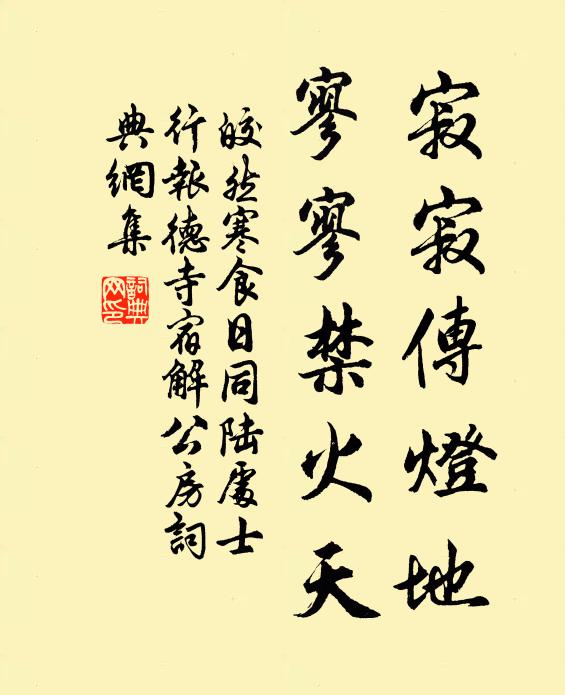 寂寂傳燈地
寥寥禁火天
皎然寒食日同陆處士
行報德寺宿解公房詞
典網集
詞典
网印